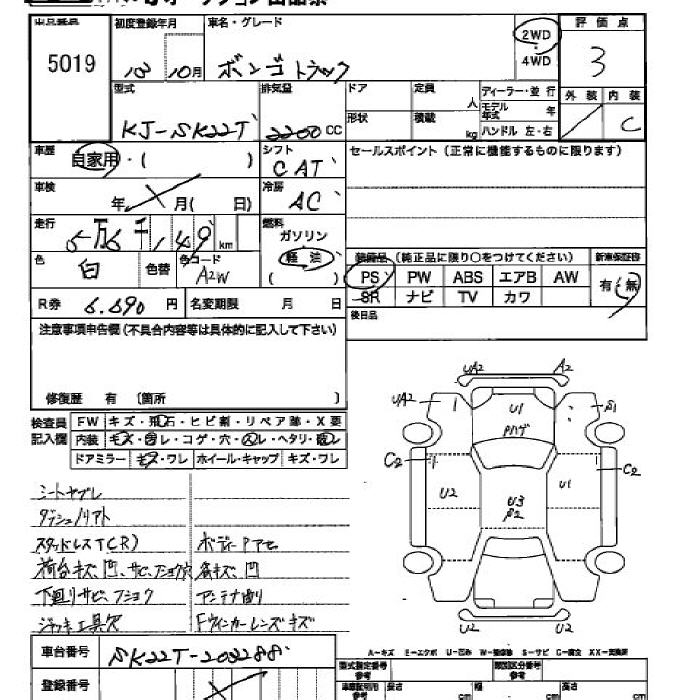 出品番号 初度登録年月 車名・グレード 2WD 評価点
5019 10月 ボンゴトラック 4WD 3
型式 排気量 ドア 定員 人 ディーラー・並行 外装 内装
KJ-SK22T 2200CC 形状 積載 kg モデル年式 年 C
ハンドル 左・右
車歴 自家用・( ) シフト CAT セールスポイント(正常に機能するものに限ります)
車検 年 月( 日) 冷房 AC
走行 5万6千149km 燃料
ガソリン
軽油
( )
色 白 色替 色コード A2W
装備品(純正品に限り○をつけてください) 新車保証書
PS PW ABS エアB AW 有・無
SR ナビ TV カワ
R券 6.690円 名変期限 月 日 後日品
注意事項申告欄(不具合内容等は具体的に記入して下さい)
修復歴 有 〔箇所 〕
検査員 FW キズ・飛石・ヒビ割・リペア跡・X要
記入欄 内装 ・コゲ・穴・ ・ヘタリ・
ドアミラー キズ・ワレ ホイール・キャップ キズ・ワレ
シートヤブレ
スタッドレスT(CR)
荷台キズ、凹、サビ、
下廻りサビ、フショク アンテナ曲り
ジャッキ工具欠 Fウインカーレンズキズ
UA2 A2
UA2 U1 S1
C2 C2
U2 U3 U1
U2 U2
A=キズ E=エクボ U=凹み W=補修跡 S=サビ C=腐食 XX=交換済
車台番号 SK22T-203288
登録番号
型式指定番号 参考 類別区分番号 参考
長さ cm 幅 cm 高さ cm